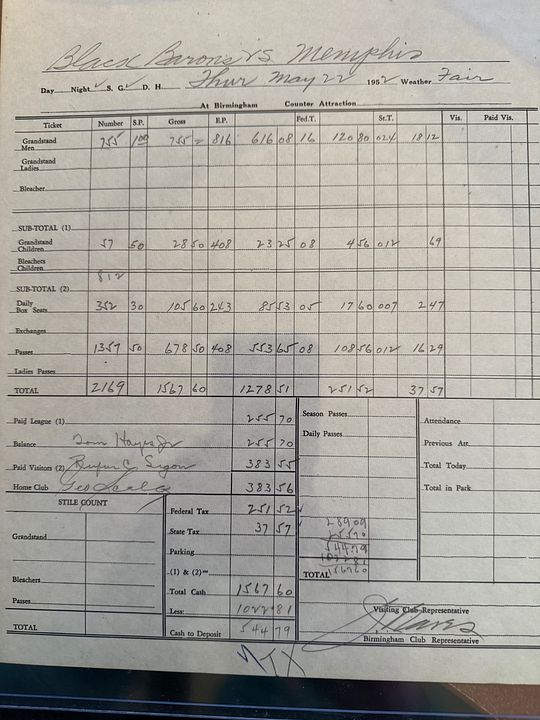 Black Barons vs. Memphis
Day Night ✓ S. G. ✓ D. H. Thur May 22 1952 Weather Fair
At Birmingham Counter Attraction
Ticket Number S.P. Gross E.P. Fed.T. St.T. Vis. Paid Vis.
Grandstand Men 755 1.00 755 – 816 616 08 16 120 80 024 18 12
Grandstand Ladies
Bleacher
SUB-TOTAL (1)
Grandstand Children 57 50 28 50 408 23 25 08 4 56 012 69
Bleachers Children
812
SUB-TOTAL (2)
Daily Box Seats 352 30 105 60 243 85 53 05 17 60 007 2 47
Exchanges
Passes 1357 50 678 50 408 553 65 08 108 56 012 16 29
Ladies Passes
TOTAL 2169 1567 60 1278 51 251 52 37 57
Paid League (1) 255 70
Balance Tom Hayes Jr 255 70
Paid Visitors (2) 383 55
Home Club 383 56
Season Passes
Daily Passes
Attendance
Previous Att.
Total Today
Total in Park
STILE COUNT
Grandstand
Bleachers
Passes
TOTAL
Federal Tax 251 52 ✓
State Tax 37 57
Parking
(1) & (2)
Total Cash 1567 60
Less: 1022 81
Cash to Deposit 544 79
289 09
255 70
544 79
1022 81
TOTAL 1567 60
Visiting Club Representative
Birmingham Club Representative